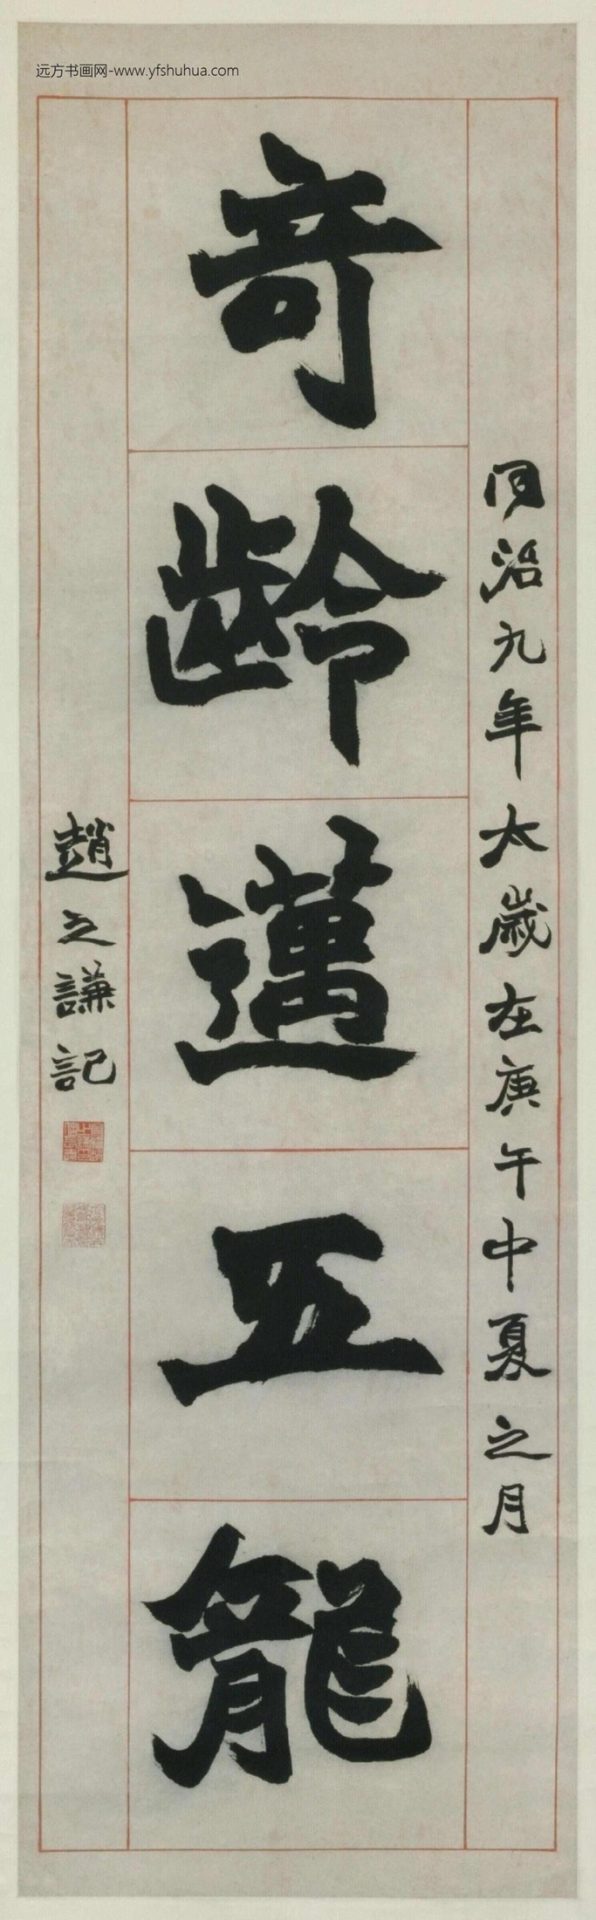 远方书画网-www.yfshuhua.com
同治九年太歲在庚午中夏之月
奇齡邁五龍
趙之謙記